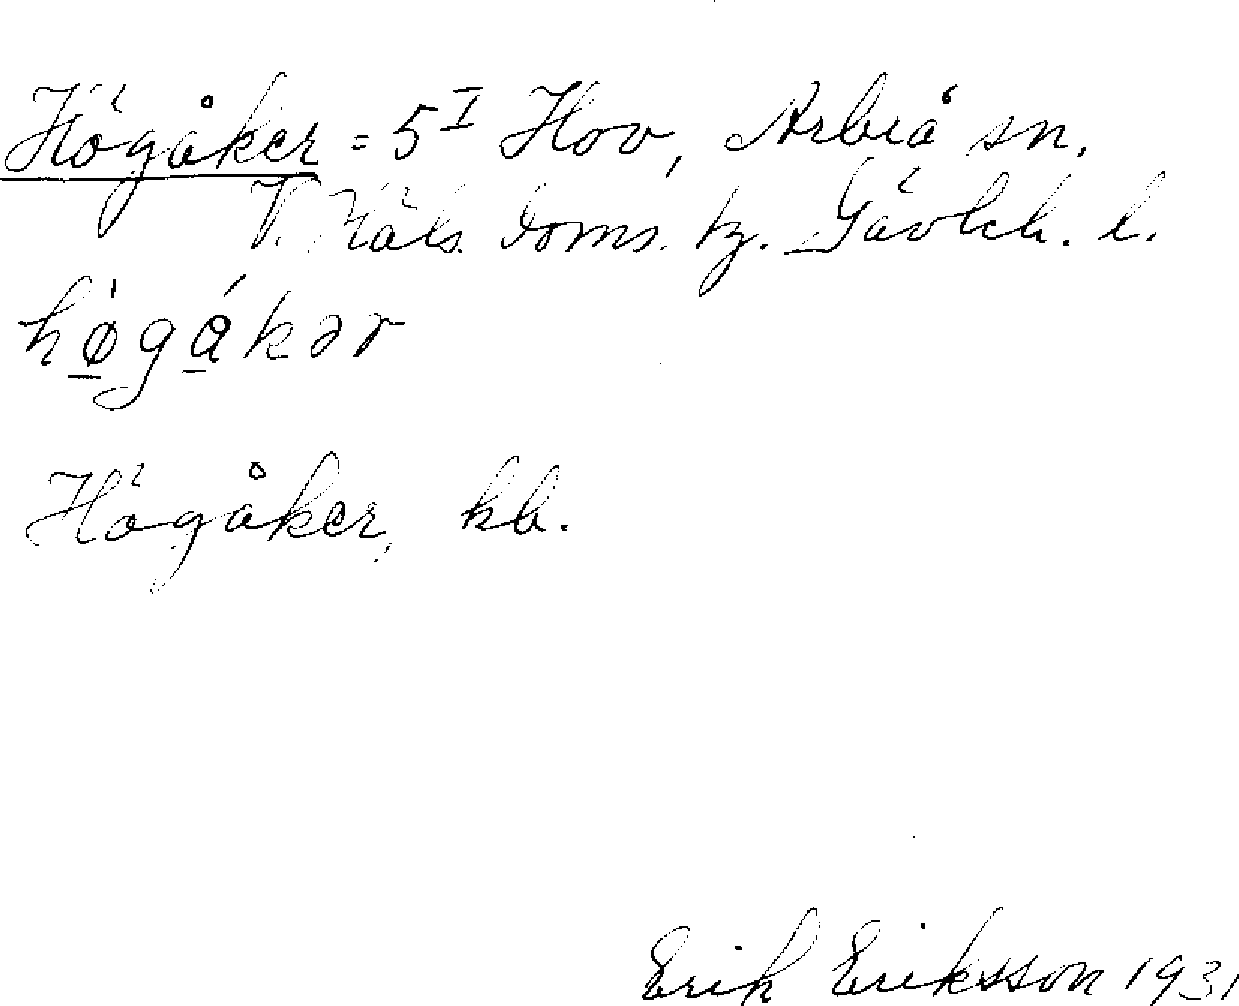 Högåker = 5ᴵ Hov, Arbrå sn.
V. Häls. doms. tg. Gävleb. l.
hø̱gå̱kər
Högåker, kb.
Erik Eriksson 1931